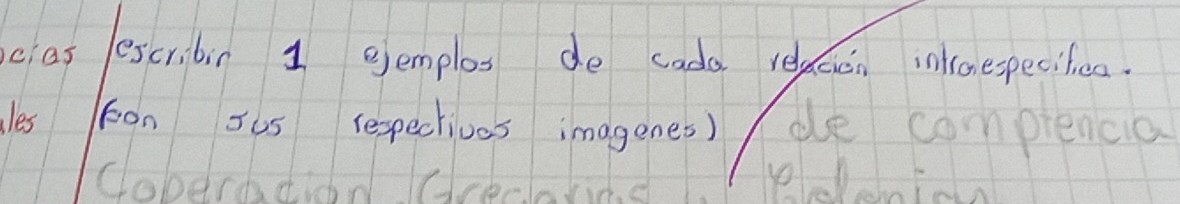 cias escribir 1 ejemplos de cada relación intraespecifica.
les con sus respectivas imagenes) de comptencia
Coperacion Gregarias